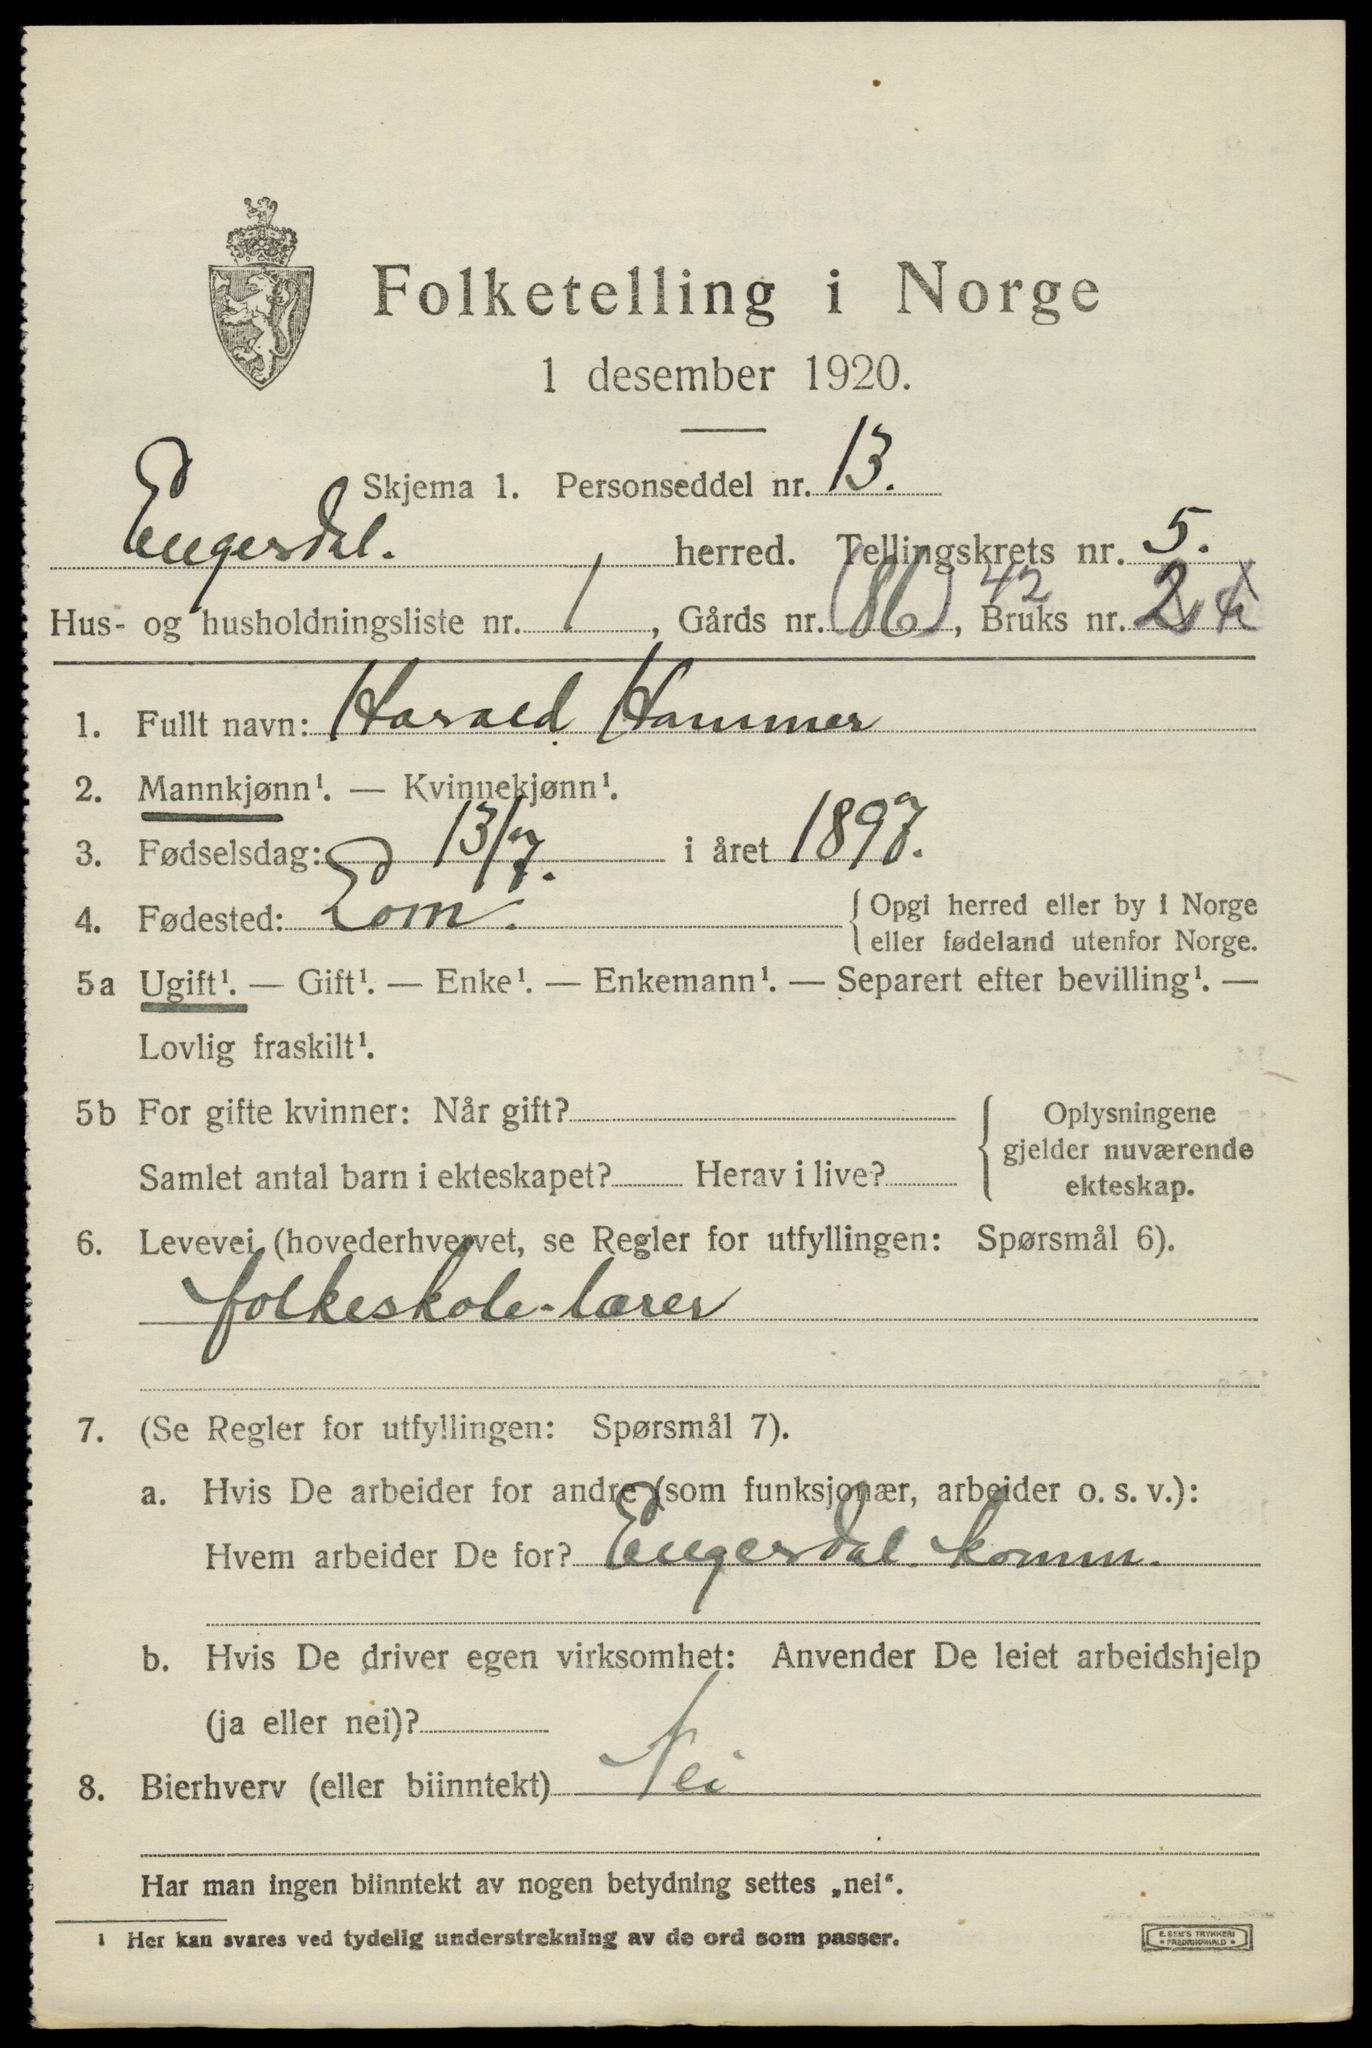 Folketelling i Norge
1 desember 1920.
Skjema 1. Personseddel nr. 13.
Engerdal. herred. Tellingskrets nr. 5.
Hus- og husholdningsliste nr. 1, Gårds nr. (86) 42, Bruks nr. 2
1. Fullt navn: Harald Hammer
2. Mannkjønn¹. — Kvinnekjønn¹.
3. Fødselsdag: 13/7. i året 1897.
4. Fødested: Lom. { Opgi herred eller by i Norge
eller fødeland utenfor Norge.
5a Ugift¹. — Gift¹. — Enke¹. — Enkemann¹. — Separert efter bevilling¹. —
Lovlig fraskilt¹.
5b For gifte kvinner: Når gift? { Oplysningene
gjelder nuværende
Samlet antal barn i ekteskapet? Herav i live? ekteskap.
6. Levevei (hovederhvervet, se Regler for utfyllingen: Spørsmål 6).
folkeskole-lærer
7. (Se Regler for utfyllingen: Spørsmål 7).
a. Hvis De arbeider for andre (som funksjonær, arbeider o. s. v.):
Hvem arbeider De for? Engerdal komm.
b. Hvis De driver egen virksomhet: Anvender De leiet arbeidshjelp
(ja eller nei)?
8. Bierhverv (eller biinntekt) Nei
Har man ingen biinntekt av nogen betydning settes „nei“.
¹ Her kan svares ved tydelig understrekning av de ord som passer.
E. SEM'S TRYKKERI
FREDRIKSHALD